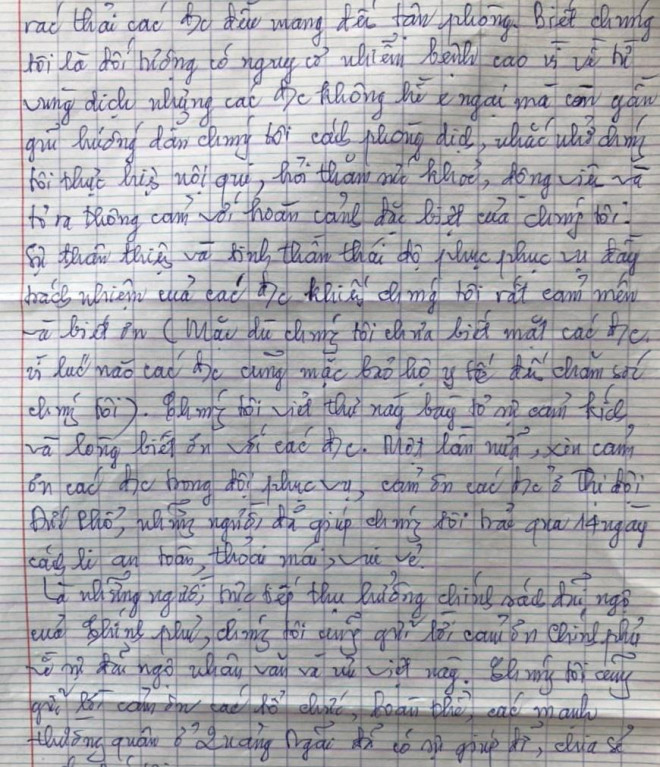 rác thải các đ/c đều mang đến tận phòng. Biết chúng
tôi là đối tượng có nguy cơ nhiễm bệnh cao vì về từ
vùng dịch nhưng các đ/c không hề e ngại mà còn gần
gũi hướng dẫn chúng tôi cách phòng dịch, nhắc nhở chúng
tôi thực hiện nội qui, hỏi thăm sức khoẻ, động viên và
tỏ ra thông cảm với hoàn cảnh đặc biệt của chúng tôi.
Sự thân thiện và tinh thần thái độ phục phục vụ đầy
trách nhiệm của các đ/c khiến chúng tôi rất cảm mến
và biết ơn (Mặc dù chúng tôi chưa biết mặt các đ/c
vì lúc nào các đ/c cũng mặc bảo hộ y tế để chăm sóc
chúng tôi). Chúng tôi viết thư này bày tỏ sự cảm kích
và lòng biết ơn với các đ/c. Một lần nữa, xin cảm
ơn các đ/c trong đội phục vụ, cảm ơn các đ/c ở Thị đội
Đức Phổ, những người đã giúp chúng tôi trải qua 14 ngày
cách li an toàn, thoải mái, vui vẻ.
Là những người trực tiếp thu hưởng chính sách đãi ngộ
của Chính phủ, chúng tôi cũng gửi lời cảm ơn Chính phủ
về sự đãi ngộ nhân văn và ưu việt này. Chúng tôi cũng
gửi lời cảm ơn các tổ chức, đoàn thể, các mạnh
thường quân ở Quảng Ngãi đã có sự giúp đỡ, chia sẻ